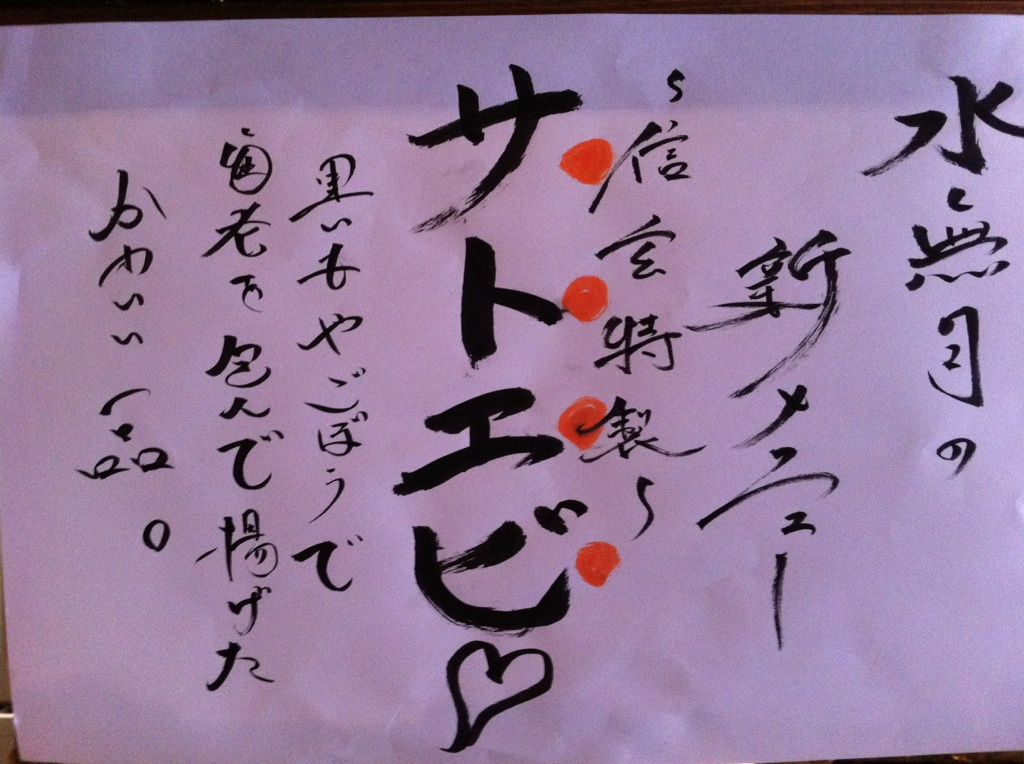 水無月の
新メニュー
〜信玄特製〜
サトエビ♡
黒いもやごぼうで
海老を包んで揚げた
かわいい一品。